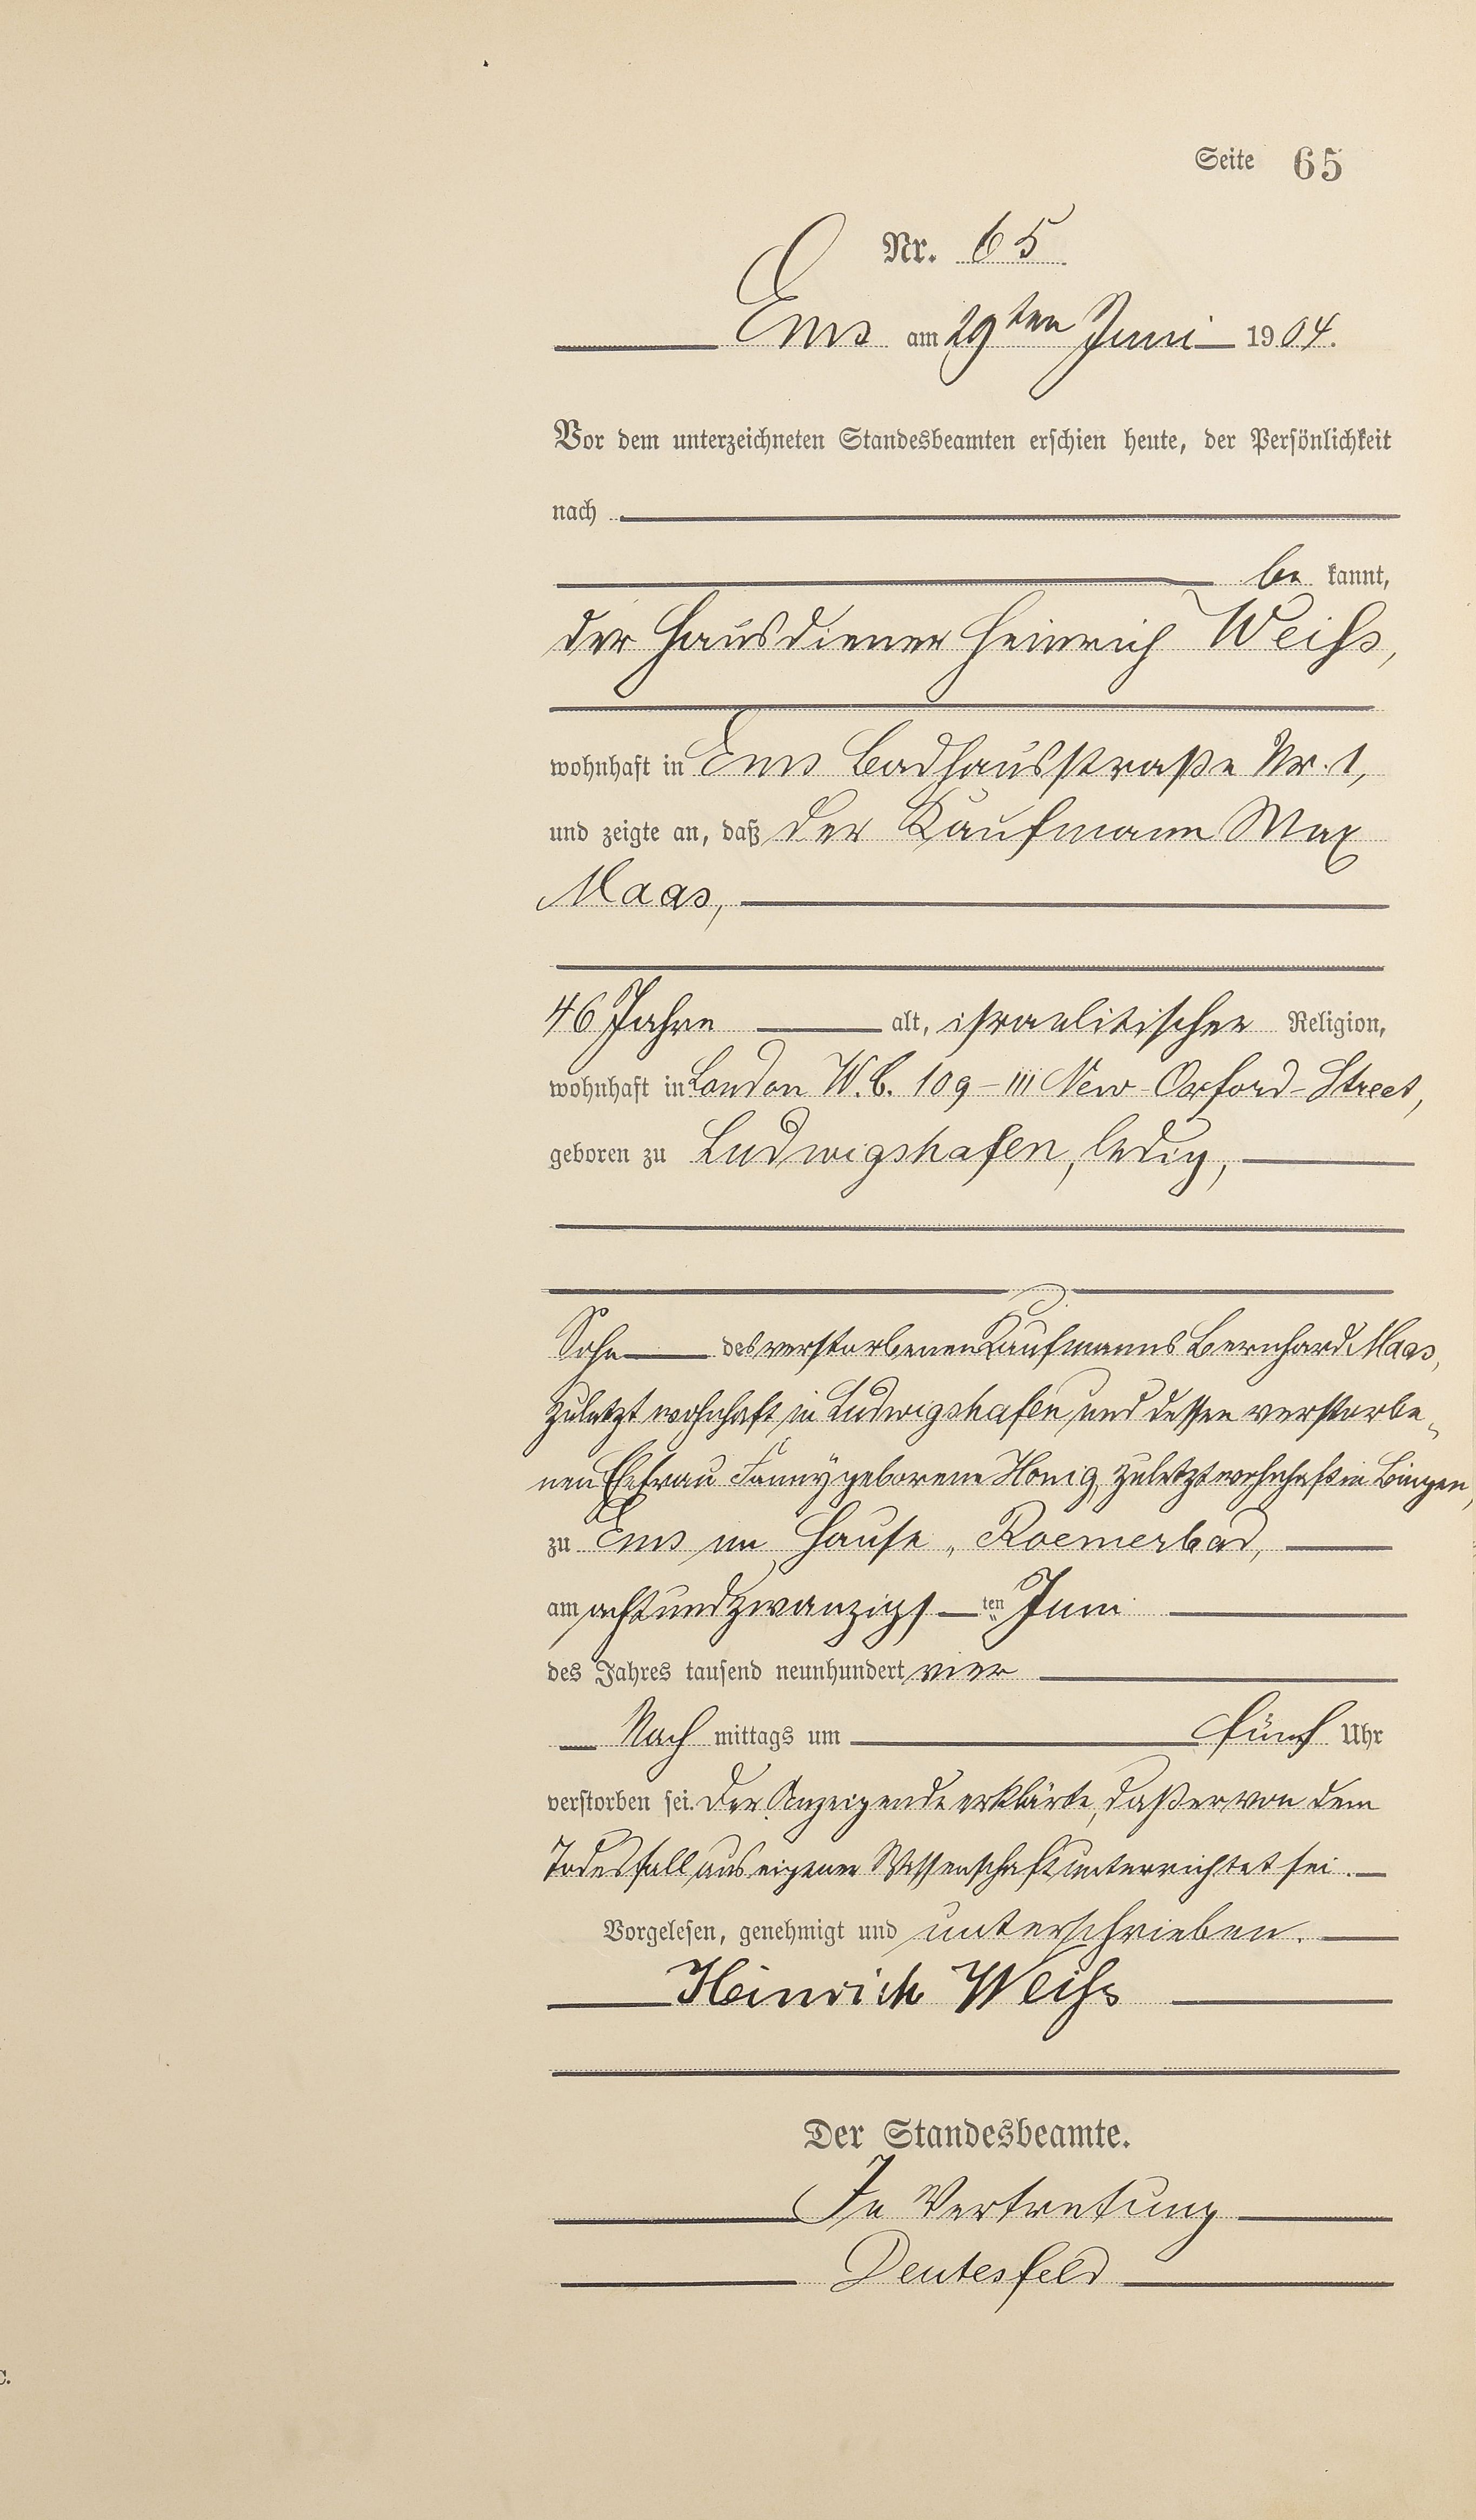 Seite 65
Nr. 65
Ems am 29ten Juni 1904.
Vor dem unterzeichneten Standesbeamten erschien heute, der Persönlichkeit
nach
be kannt,
der Hausdiener Heinrich Weiß,
wohnhaft in Ems Badhausstraße Nr. 1,
und zeigte an, daß der Kaufmann Max
Maas,
46 Jahre alt, israelitischer Religion,
wohnhaft in London W.C. 109-111 New-Oxford-Street,
geboren zu Ludwigshafen, ledig,
Sohn des verstorbenen Kaufmanns Bernhard Maas,
zuletzt wohnhaft in Ludwigshafen und dessen verstorbe-
nen Ehefrau Fanny geborene Honig, zuletzt wohnhaft in Bingen,
zu Ems im Hause „Roemerbad,
am achtundzwanzigs ten Juni
des Jahres tausend neunhundert vier
Nach mittags um fünf Uhr
verstorben sei. Der Anzeigende erklärte, daß er von dem
Todesfall aus eigener Wissenschaft unterrichtet sei.
Vorgelesen, genehmigt und unterschrieben.
Heinrich Weiß
Der Standesbeamte.
In Vertretung
Deutesfeld
C.